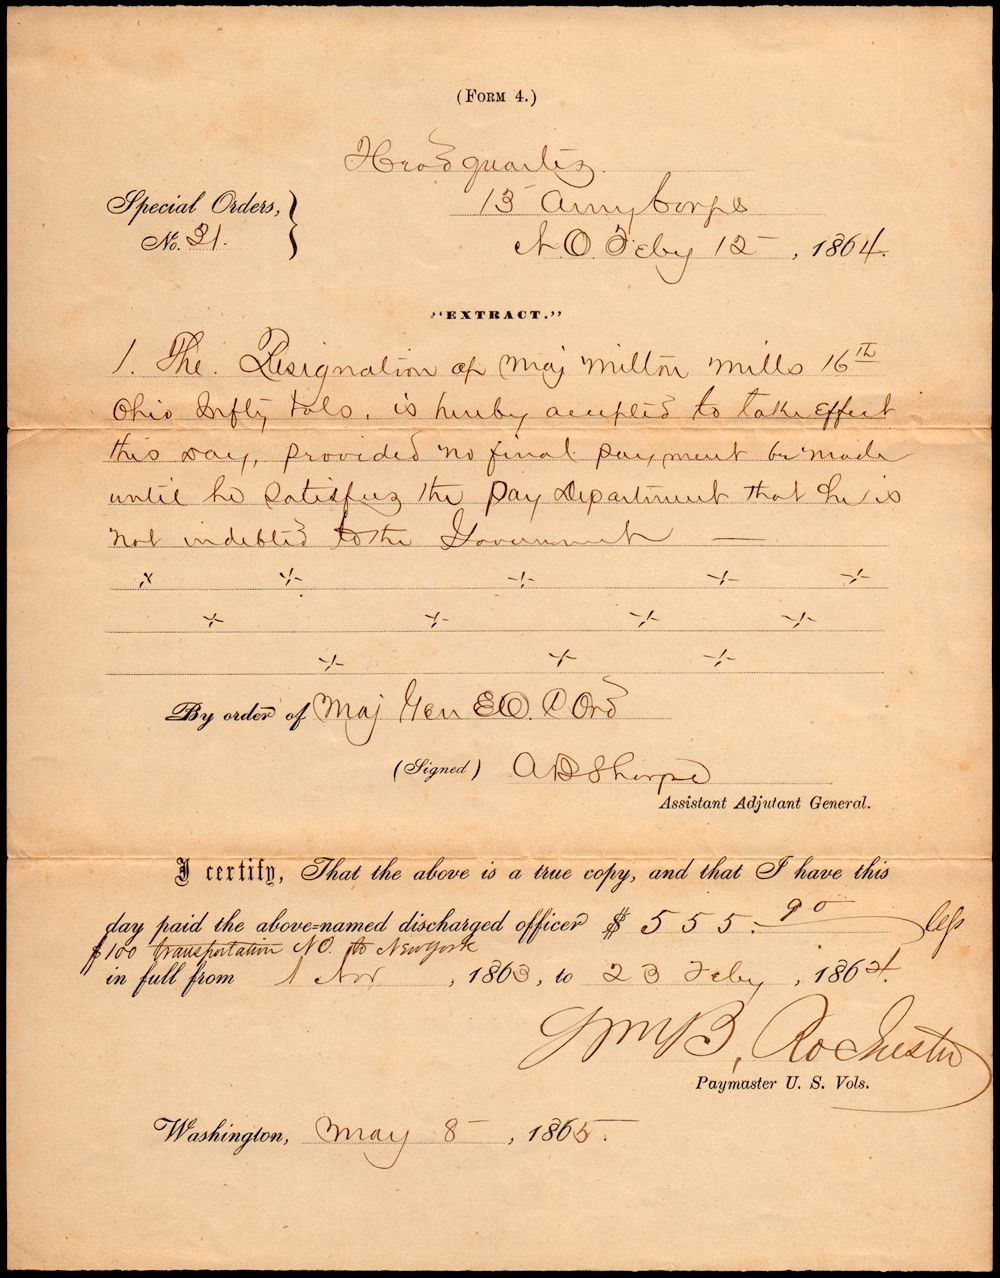 (FORM 4.)
Headquarters
Special Orders,
13 Army Corps
No. 21.
N O. Feby 12, 1864.
"EXTRACT."
1. The Resignation of Maj Milton Mills 16th
Ohio Infty Vols. is hereby accepted to take effect
this day, provided no final payment be made
until he satisfies the Pay Department that he is
not indebted to the Government —
By order of Maj Gen E O. C Ord
(Signed) A D Sharpe
Assistant Adjutant General.
I certify, That the above is a true copy, and that I have this
day paid the above-named discharged officer $ 555.90 less
$100 transportation N O. to New York
in full from 1 Nov, 1863, to 23 Feby, 1864.
Wm B, Rochester
Paymaster U. S. Vols.
Washington, May 8, 1865.